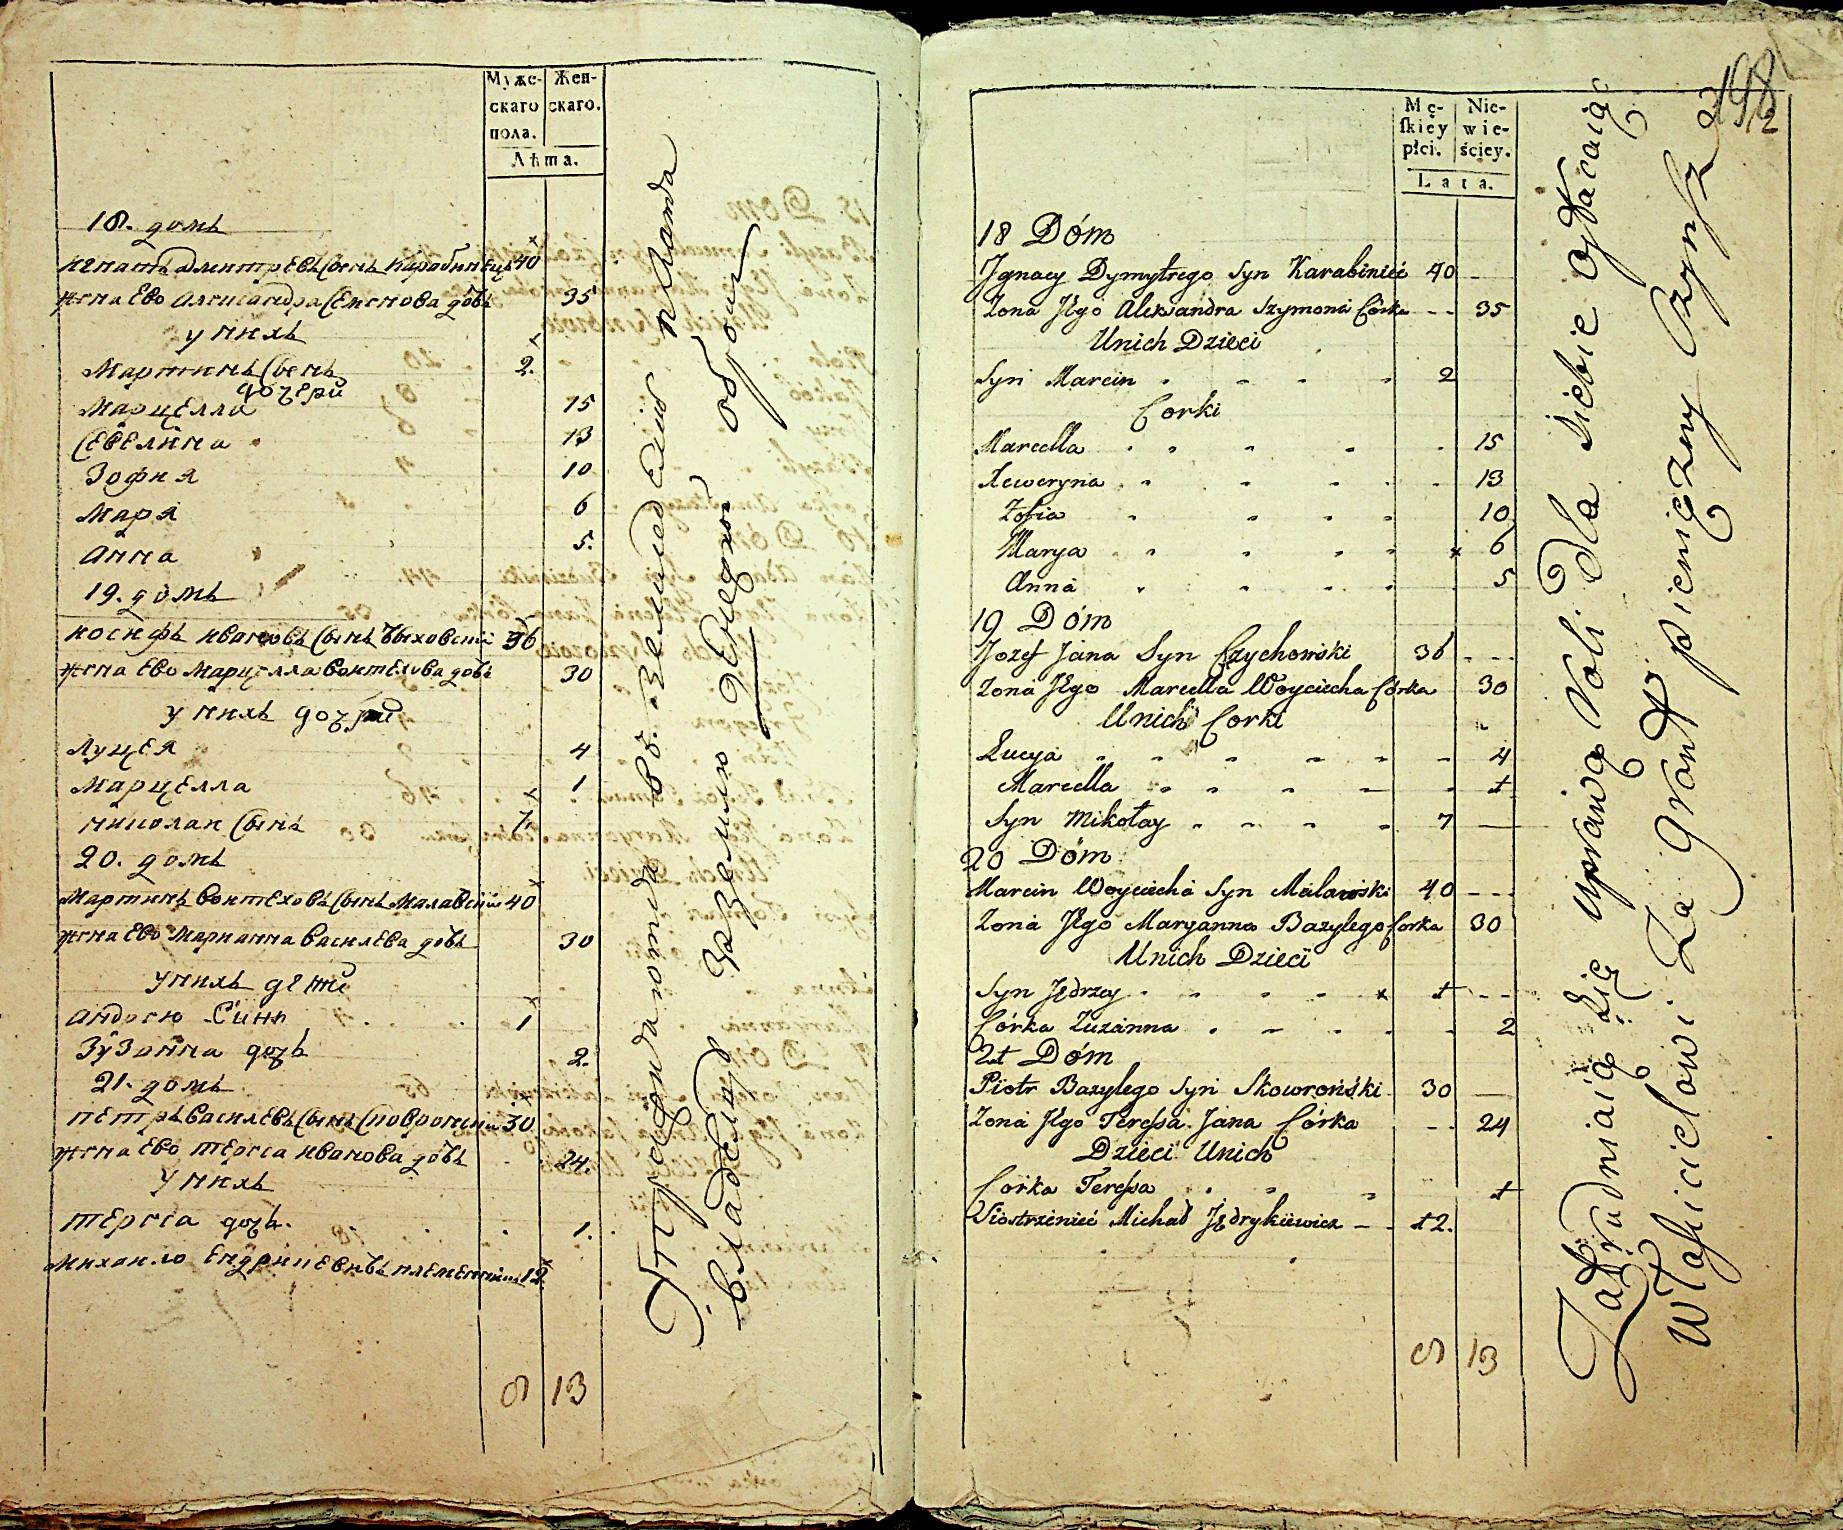 Муже-
скаго
пола.
Жен-
скаго.
Лѣта.
18. домъ
Игнатъ Дмитревъ сынъ Карабинецъ 40
жена Ево Александра Семенова дочь 35
у нихъ
Мартинъ сынъ 2.
дочери
Марцелла 15
Севелина 13
Зофия 10
Маря 6
Анна 5.
19. домъ
Иосифъ Ивановъ сынъ 36
жена Ево Марцелла 30
у нихъ дочери
Луцея 4
Марцелла 1
Николаи сынъ 7.
20. домъ
Мартинъ Воитеховъ сынъ Малавскии 40
жена Ево Марианна Василева дочь 30
у нихъ дети
Андрею Синъ 1
Зузанна дочь 2.
21. домъ
Петръ Василевъ сынъ Сковронски 30
жена Ево Тереса Иванова дочь 24.
у нихъ
Тереса дочь. 1.
Михаило племенникъ 12
9 13
владелцу за землю денежной оброкъ
198
Mę-
ſkiéy
płci.
Nie-
wie-
ściey.
Lata.
18 Dóm
Jgnacy Dymytrego Syn Karabinieć 40 - -
Zona Jego Alexandra Szymona Córka - - 35
Unich Dzieci
Syn Marcin - - - - 2
Corki
Marcella - - - - - 15
Seweryna - - - - - 13
Zofia - - - - 10
Marya - - - - 6
Anna - - - - 5
19 Dóm
Jozef Jana Syn Czychowski 36 - - -
Zona Jego Marcella Woyciecha Córka 30
Unich Corki
Lucya - - - - - - 4
Marcella - - - - - 1
Syn Mikołay - - - - 7 —
20 Dóm
Marcin Woyciecha Syn Malawski 40 - - -
Zona Jego Maryanna Bazylego Corka 30
Unich Dzieci
Syn Jędrzey - - - - 1 - -
Córka Zuzanna - - - - - 2
21 Dóm
Piotr Bazylego Syn Skowroński 30 —
Zona Jego Tereſsa Jana Córka - - 24
Dzieci Unich
Corka Tereſsa - - - 1
Siostrzenieć Michał Jędrykiewicz - - 12.
9 13
Zatrudniaią się uprawą Roli dla siebie opłacaią
Właścicielowi za Grunt pieniężny Czynsz